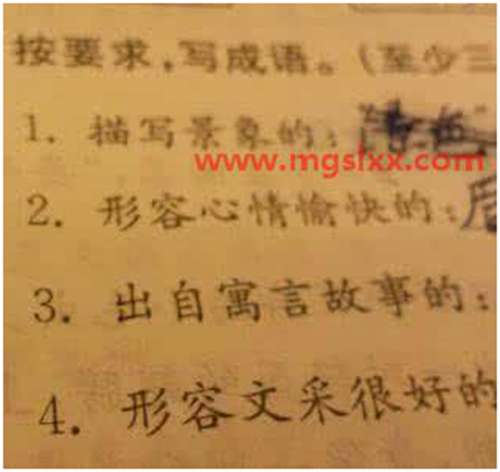 按要求，写成语。（至少三
1. 描写景象的：
www.mgslxx.com
2. 形容心情愉快的：
3. 出自寓言故事的：
4. 形容文采很好的